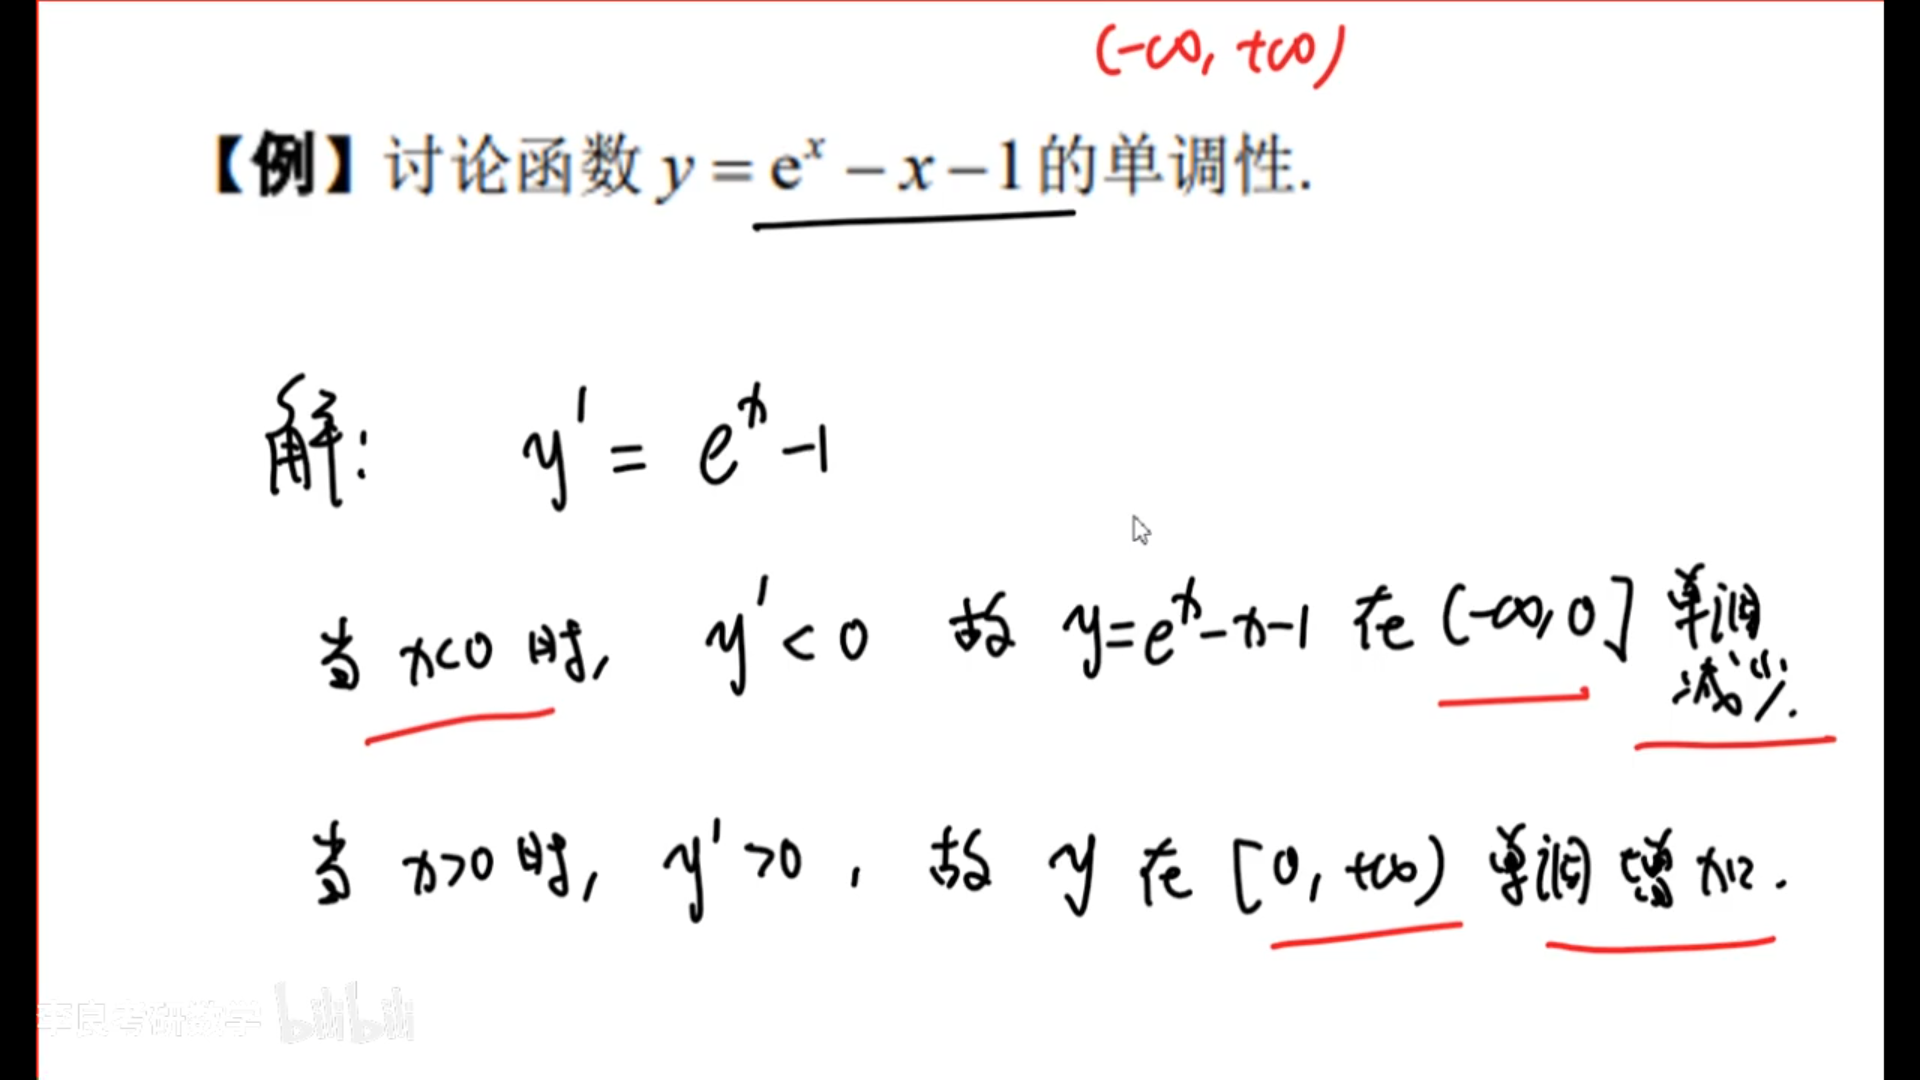 (-∞, +∞)
【例】讨论函数 y = eˣ − x − 1 的单调性.
解: y' = eˣ -1
当 x<0 时, y' < 0 故 y=eˣ-x-1 在 (-∞, 0] 单调
减少.
当 x>0 时, y' >0 , 故 y 在 [0, +∞) 单调增加.
李良考研数学 bilibili